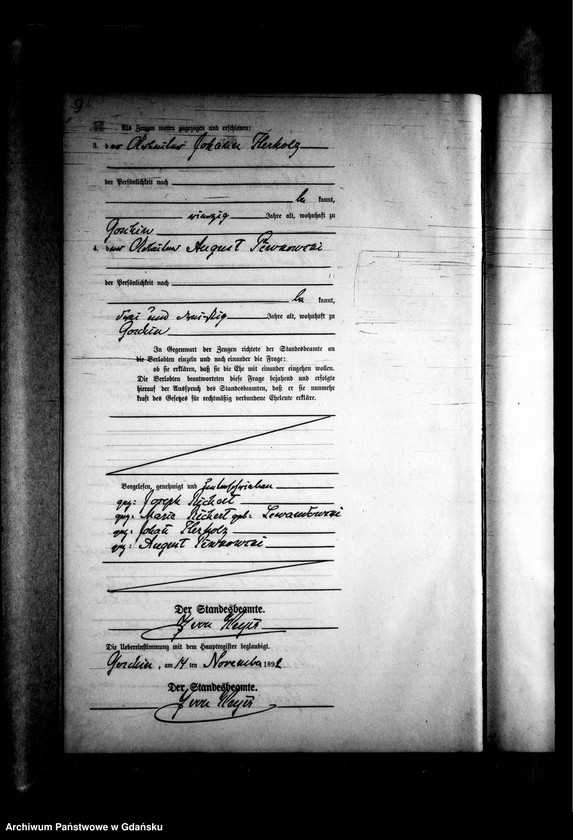 Als Zeugen waren zugezogen und erschienen:
3. der Johann Herholz
der Persönlichkeit nach
be kannt,
vierzig Jahre alt, wohnhaft zu
4. der August
der Persönlichkeit nach
be kannt,
und Jahre alt, wohnhaft zu
In Gegenwart der Zeugen richtete der Standesbeamte an
die Verlobten einzeln und nach einander die Frage:
ob sie erklären, daß sie die Ehe mit einander eingehen wollen.
Die Verlobten beantworteten diese Frage bejahend und erfolgte
hierauf der Ausspruch des Standesbeamten, daß er sie nunmehr
kraft des Gesetzes für rechtmäßig verbundene Eheleute erkläre.
Vorgelesen, genehmigt und unterschrieben
gez: Joseph Richert
gez: Maria Richert geb: Lewandowski
gez: Johann Herholz
gez: August
Der Standesbeamte.
von
Die Uebereinstimmung mit dem Hauptregister beglaubigt.
am 14 ten November 189
Der Standesbeamte.
von
Archiwum Państwowe w Gdańsku